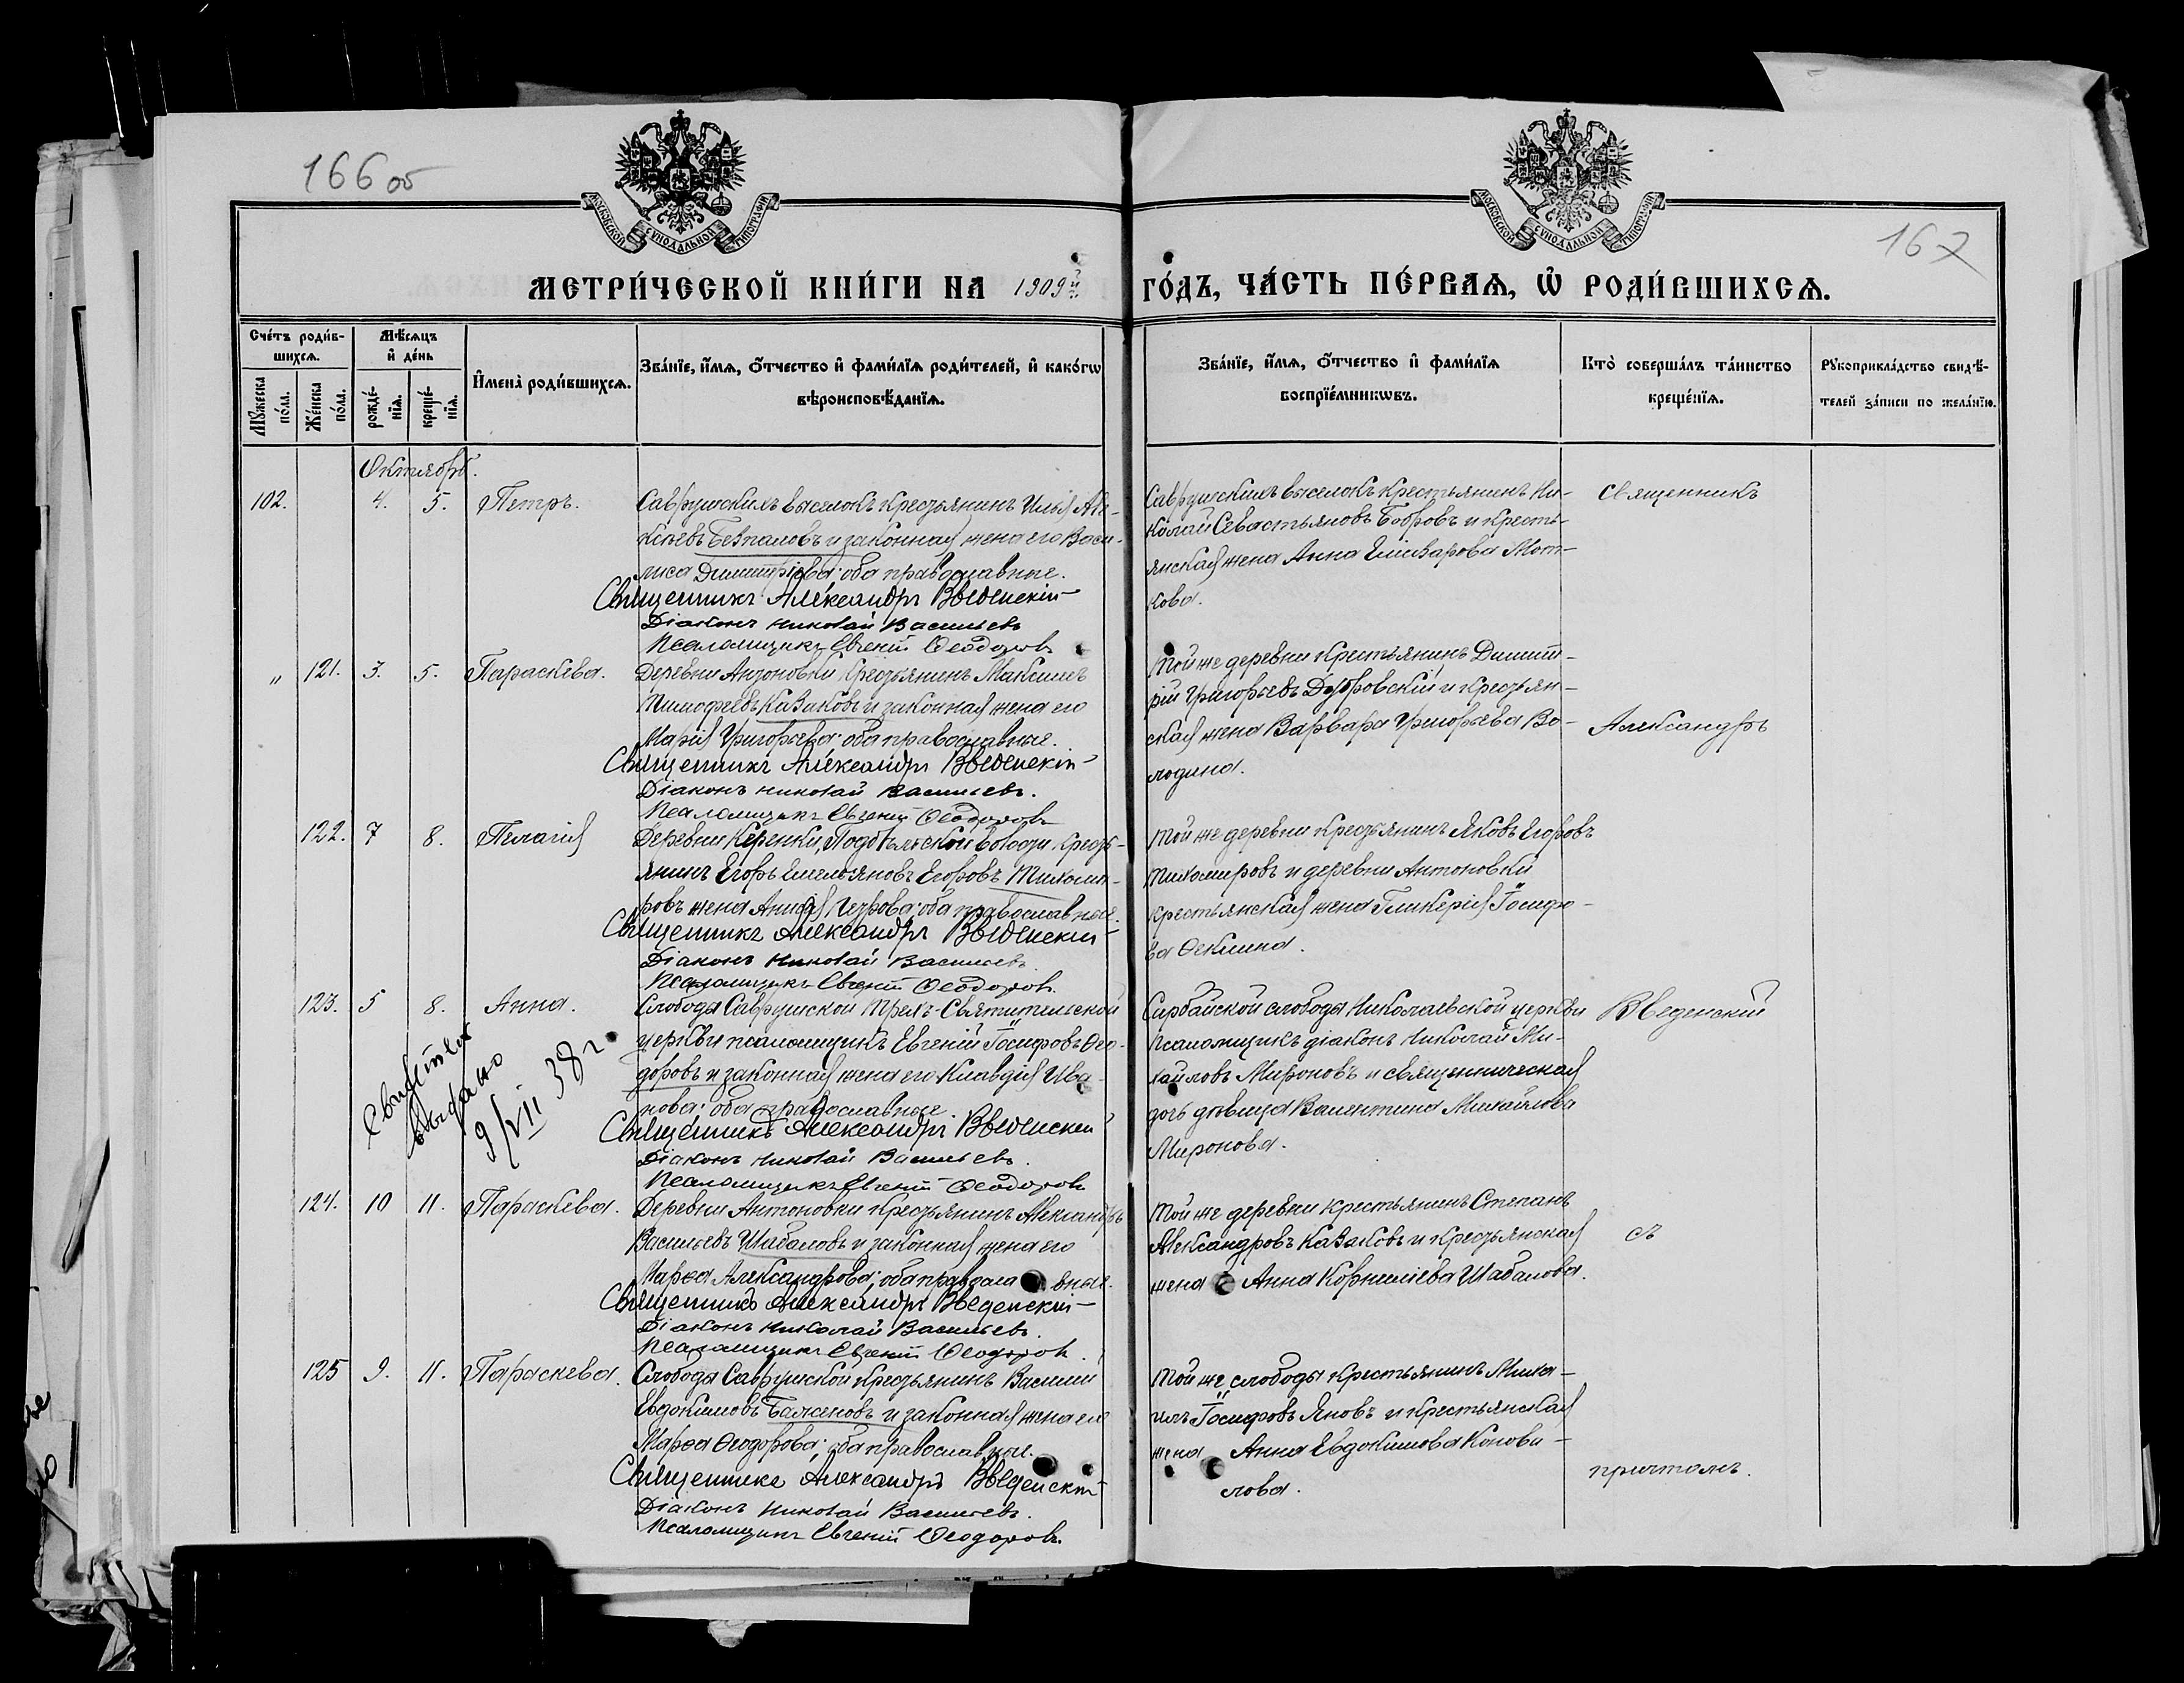 166 об
167
МОСКОВСКОЙ СѴНОДАЛЬНОЙ ТИПОГРАФІИ
МОСКОВСКОЙ СѴНОДАЛЬНОЙ ТИПОГРАФІИ
МЕТРИ́ЧЕСКОЙ КНИ́ГИ НА 1909й ГО́ДЪ, ЧА́СТЬ ПЕ́РВАѦ, Ѽ РОДИ́ВШИХСѦ.
Сче́тъ роди́в-
шихсѧ.
Мꙋжеска по́ла.
Же́нска по́ла.
Мѣ́сѧцъ
и҆ де́нь
рожде́-
нїѧ.
креще́-
нїѧ.
И҆мена̀ роди́вшихсѧ.
Зва́нїе, и҆́мѧ, ѻ҆́тчество и҆ фами́лїѧ роди́телей, и҆ како́гѡ
вѣроисповѣ́данїѧ.
Зва́нїе, и҆́мѧ, ѻ҆́тчество и҆ фами́лїѧ
воспрїе́мникѡвъ.
Кто̀ соверша́лъ та́инство
креще́нїѧ.
Рꙋкоприкла́дство свидѣ́-
телей за́писи по жела́нїю.
Октябрь.
102. 4. 5. Петръ.
Саврушскихъ выселокъ крестьянинъ Илья Але-
ксѣевъ Безпаловъ и законная жена его Васи-
лиса Димитріева; оба православные.
Священникъ Александръ Введенскій
Діаконъ Николай Васильевъ
Псаломщикъ Евгеній Ѳеодоровъ
Саврушскихъ выселокъ крестьянинъ Ни-
колай Севастьяновъ Бобровъ и кресть-
янская жена Анна Елиазарова Мот-
кова.
Священникъ
" 121. 3. 5. Параскева.
Деревни Антоновки крестьянинъ Максимъ
Тимофеевъ Казаковъ и законная жена его
Марія Григорьева; оба православные.
Священникъ Александръ Введенскій
Діаконъ Николай Васильевъ.
Псаломщикъ Евгеній Ѳеодоровъ
Той же деревни крестьянинъ Димит-
рій Григорьевъ Дубровскій и крестьян-
ская жена Варвара Григорьева Во-
лодина.
Александръ
122. 7 8. Пелагія
Деревни Керенки, Подбѣльской волости, кресть-
янинъ Егоръ Емельяновъ Егоровъ Тихоми-
ровъ жена Петрова; оба православные.
Священникъ Александръ Введенскій
Діаконъ Николай Васильевъ.
Псаломщикъ Евгеній Ѳеодоровъ.
Той же деревни крестьянинъ Яковъ Егоровъ
Тихомировъ и деревни Антоновки
крестьянская жена Гликерія Іосифо-
ва
123. 5 8. Анна.
Слободы Саврушской Трехъ-Святительской
церкви псаломщикъ Евгеній Іосифовъ Ѳео-
доровъ и законная жена его Клавдія Ива-
нова; оба православные.
Священникъ Александръ Введенскій
Діаконъ Николай Васильевъ.
Псаломщикъ Евгеній Ѳеодоровъ
Сарбайской слободы Николаевской церкви
псаломщикъ діаконъ Николай Ми-
хайловъ Мироновъ и священническая
дочь дѣвица Валентина Михайлова
Миронова.
Введенскій
выдано
9/VII 38 г
124. 10 11. Параскева.
Деревни Антоновки крестьянинъ Александръ
Васильевъ Шабаловъ и законная жена его
Марѳа Александрова; оба православные.
Священникъ Александръ Введенскій
Діаконъ Николай Васильевъ.
Псаломщикъ Евгеній Ѳеодоровъ.
Той же деревни крестьянинъ Степанъ
Александровъ Казаковъ и крестьянская
жена Анна Корниліева Шабалова.
съ
125 9. 11. Параскева.
Слободы Саврушской крестьянинъ Василій
Евдокимовъ Баженовъ и законная жена его
Марѳа Ѳеодорова; оба православные.
Священникъ Александръ Введенскій
Діаконъ Николай Васильевъ.
Псаломщикъ Евгеній Ѳеодоровъ.
Той же слободы крестьянинъ Миха-
илъ Іосифовъ Яновъ и крестьянская
жена Анна Евдокимова Конова-
лова.
причтомъ.